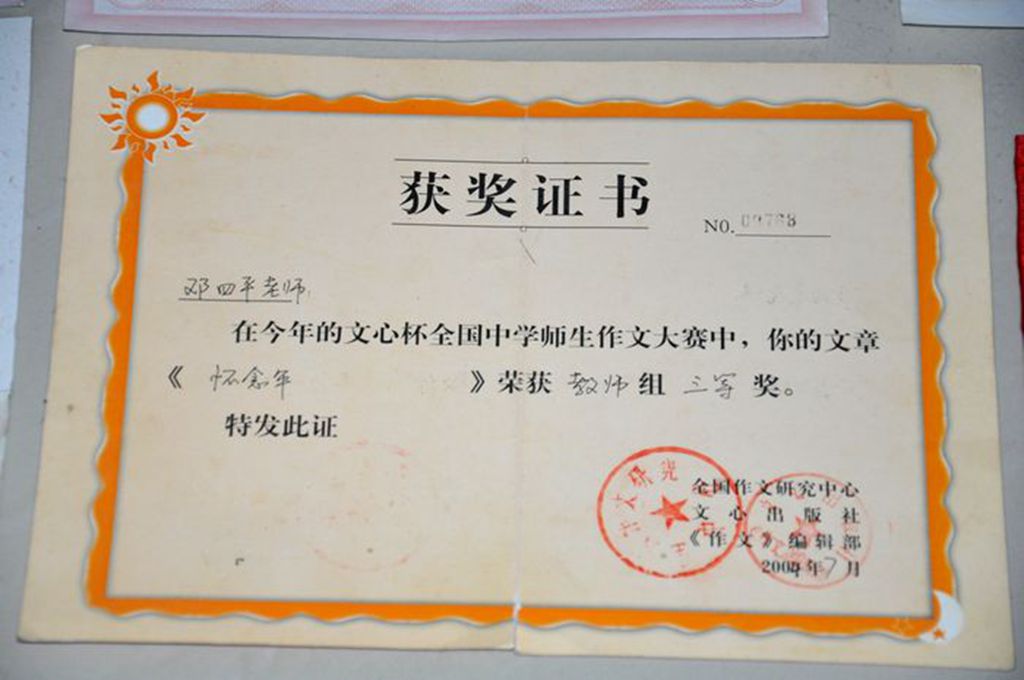 获奖证书
NO. 09768
邓四平老师:
在今年的文心杯全国中学师生作文大赛中，你的文章
《怀念年》荣获 教师 组 三等 奖。
特发此证
全国作文研究中心
文心出版社
《作文》编辑部
2004年7月